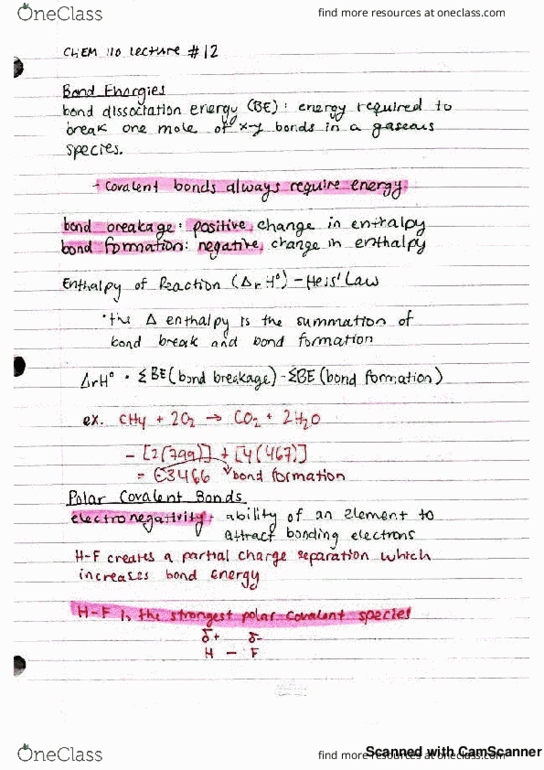 OneClass
find more resources at oneclass.com
CHEM 110 Lecture #12
Bond Energies
bond dissociation energy (BE): energy required to
break one mole of x-y bonds in a gaseous
species.
+ covalent bonds always require energy
bond breakage: positive, change in enthalpy
bond formation: negative, change in enthalpy
Enthalpy of Reaction (ΔrH°) - Hess' Law
• the Δ enthalpy is the summation of
bond break and bond formation
ΔrH° = ΣBE(bond breakage) - ΣBE(bond formation)
ex. CH4 + 2O2 → CO2 + 2H2O
- [2(799)] + [4(467)]
= 3466 bond formation
Polar Covalent Bonds
electronegativity: ability of an element to
attract bonding electrons
H-F creates a partial charge separation which
increases bond energy
H-F is the strongest polar covalent species
δ+ δ-
H - F
OneClass
find more resources at oneclass.com
Scanned with CamScanner